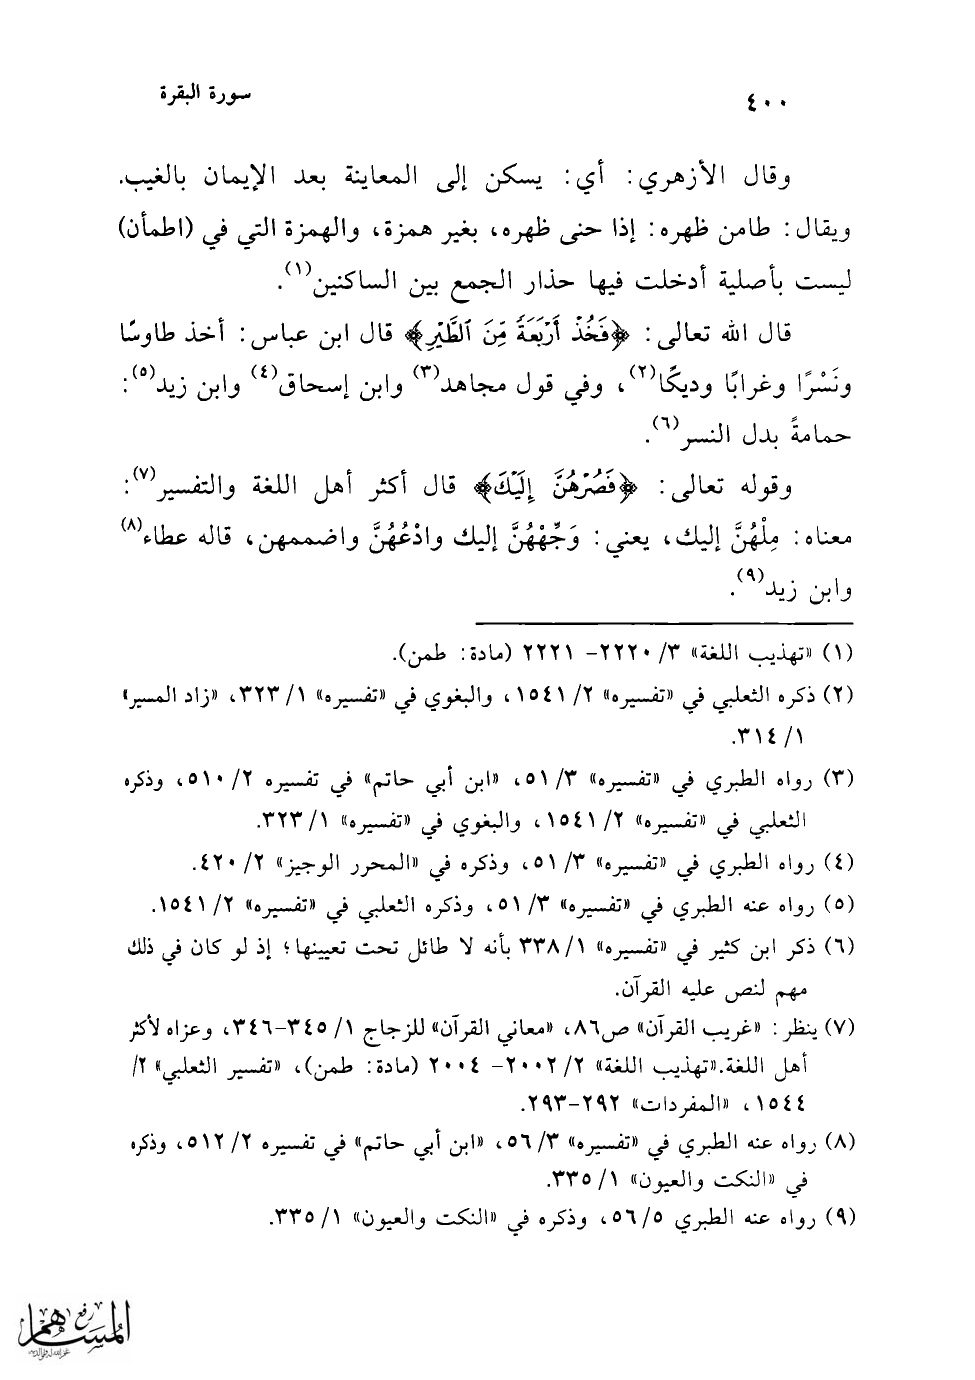 ٤٠٠ سورة البقرة
وقال الأزهري: أي: يسكن إلى المعاينة بعد الإيمان بالغيب.
ويقال: طامن ظهره: إذا حنى ظهره، بغير همزة، والهمزة التي في (اطمأن)
ليست بأصلية أدخلت فيها حذار الجمع بين الساكنين(١).
قال الله تعالى: ﴿فَخُذْ أَرْبَعَةً مِّنَ ٱلطَّيْرِ﴾ قال ابن عباس: أخذ طاوسًا
ونَسْرًا وغرابًا وديكًا(٢)، وفي قول مجاهد(٣) وابن إسحاق(٤) وابن زيد(٥):
حمامةً بدل النسر(٦).
وقوله تعالى: ﴿فَصُرْهُنَّ إِلَيْكَ﴾ قال أكثر أهل اللغة والتفسير(٧):
معناه: مِلْهُنَّ إليك، يعني: وَجِّهْهُنَّ إليك وادْعُهُنَّ واضممهن، قاله عطاء(٨)
وابن زيد(٩).
(١) «تهذيب اللغة» ٣/ ٢٢٢٠- ٢٢٢١ (مادة: طمن).
(٢) ذكره الثعلبي في «تفسيره» ٢/ ١٥٤١، والبغوي في «تفسيره» ١/ ٣٢٣، «زاد المسير»
١/ ٣١٤.
(٣) رواه الطبري في «تفسيره» ٣/ ٥١، «ابن أبي حاتم» في تفسيره ٢/ ٥١٠، وذكره
الثعلبي في «تفسيره» ٢/ ١٥٤١، والبغوي في «تفسيره» ١/ ٣٢٣.
(٤) رواه الطبري في «تفسيره» ٣/ ٥١، وذكره في «المحرر الوجيز» ٢/ ٤٢٠.
(٥) رواه عنه الطبري في «تفسيره» ٣/ ٥١، وذكره الثعلبي في «تفسيره» ٢/ ١٥٤١.
(٦) ذكر ابن كثير في «تفسيره» ١/ ٣٣٨ بأنه لا طائل تحت تعيينها؛ إذ لو كان في ذلك
مهم لنص عليه القرآن.
(٧) ينظر: «غريب القرآن» ص٨٦، «معاني القرآن» للزجاج ١/ ٣٤٥-٣٤٦، وعزاه لأكثر
أهل اللغة.«تهذيب اللغة» ٢/ ٢٠٠٢- ٢٠٠٤ (مادة: طمن)، «تفسير الثعلبي» ٢/
١٥٤٤، «المفردات» ٢٩٢-٢٩٣.
(٨) رواه عنه الطبري في «تفسيره» ٣/ ٥٦، «ابن أبي حاتم» في تفسيره ٢/ ٥١٢، وذكره
في «النكت والعيون» ١/ ٣٣٥.
(٩) رواه عنه الطبري ٥/ ٥٦، وذكره في «النكت والعيون» ١/ ٣٣٥.